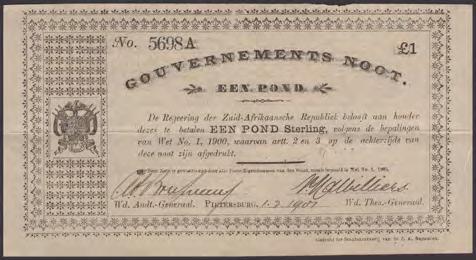 No. 5698A
£1
GOUVERNEMENTS NOOT.
EEN POND
De Regeering der Zuid-Afrikaansche Republiek belooft aan houder
dezes te betalen EEN POND Sterling, volgens de bepalingen
van Wet No. 1, 1900, waarvan artt. 2 en 3 op de achterzijde van
deze noot zijn afgedrukt.
Wd. Audt.-Generaal. PIETERSBURG, 1.2.1901 Wd. Thes.-Generaal.